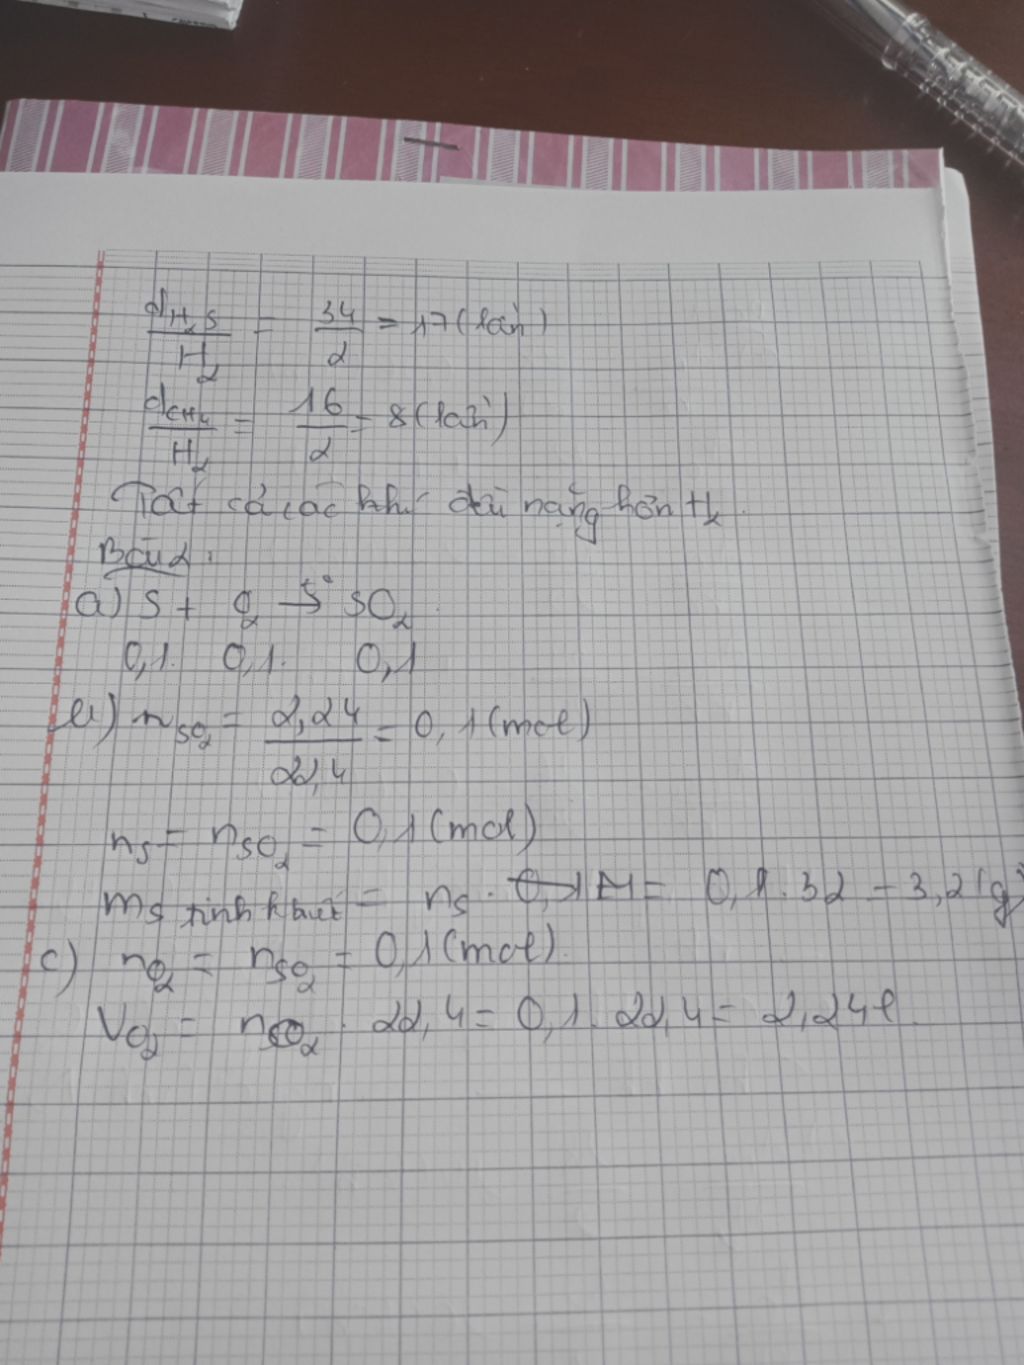 dH₂S/H₂ = 34/2 = 17 (lần)
dCH₄/H₂ = 16/2 = 8 (lần)
Tất cả các khí đều nặng hơn H₂.
Bài 2:
a) S + O₂ →t° SO₂
0,1. 0,1. 0,1
b) nSO₂ = 2,24/22,4 = 0,1 (mol)
nS = nSO₂ = 0,1 (mol)
mS tinh khiết = nS . M = 0,1 . 32 = 3,2 (g)
c) nO₂ = nSO₂ = 0,1 (mol).
VO₂ = nO₂ . 22,4 = 0,1 . 22,4 = 2,24l